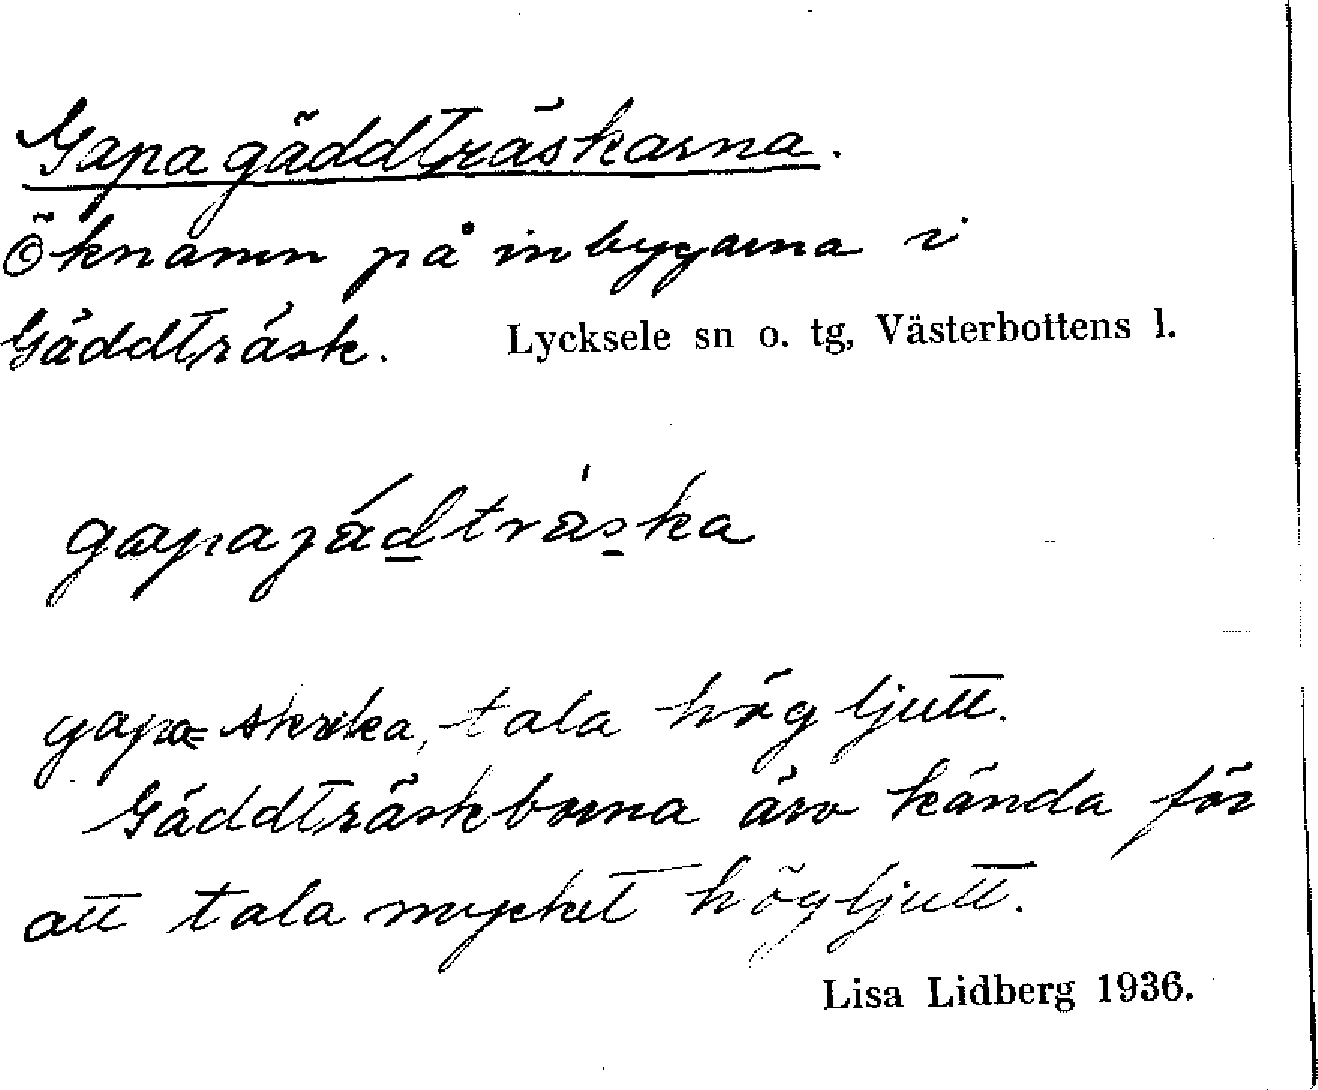 Gapagäddträskarna.
Öknamn på inbyggarna i
Gäddträsk. Lycksele sn o. tg, Västerbottens l.
gapajädträska
gapa = skrika, tala högljutt.
Gäddträskborna äro kända för
att tala mycket högljutt.
Lisa Lidberg 1936.